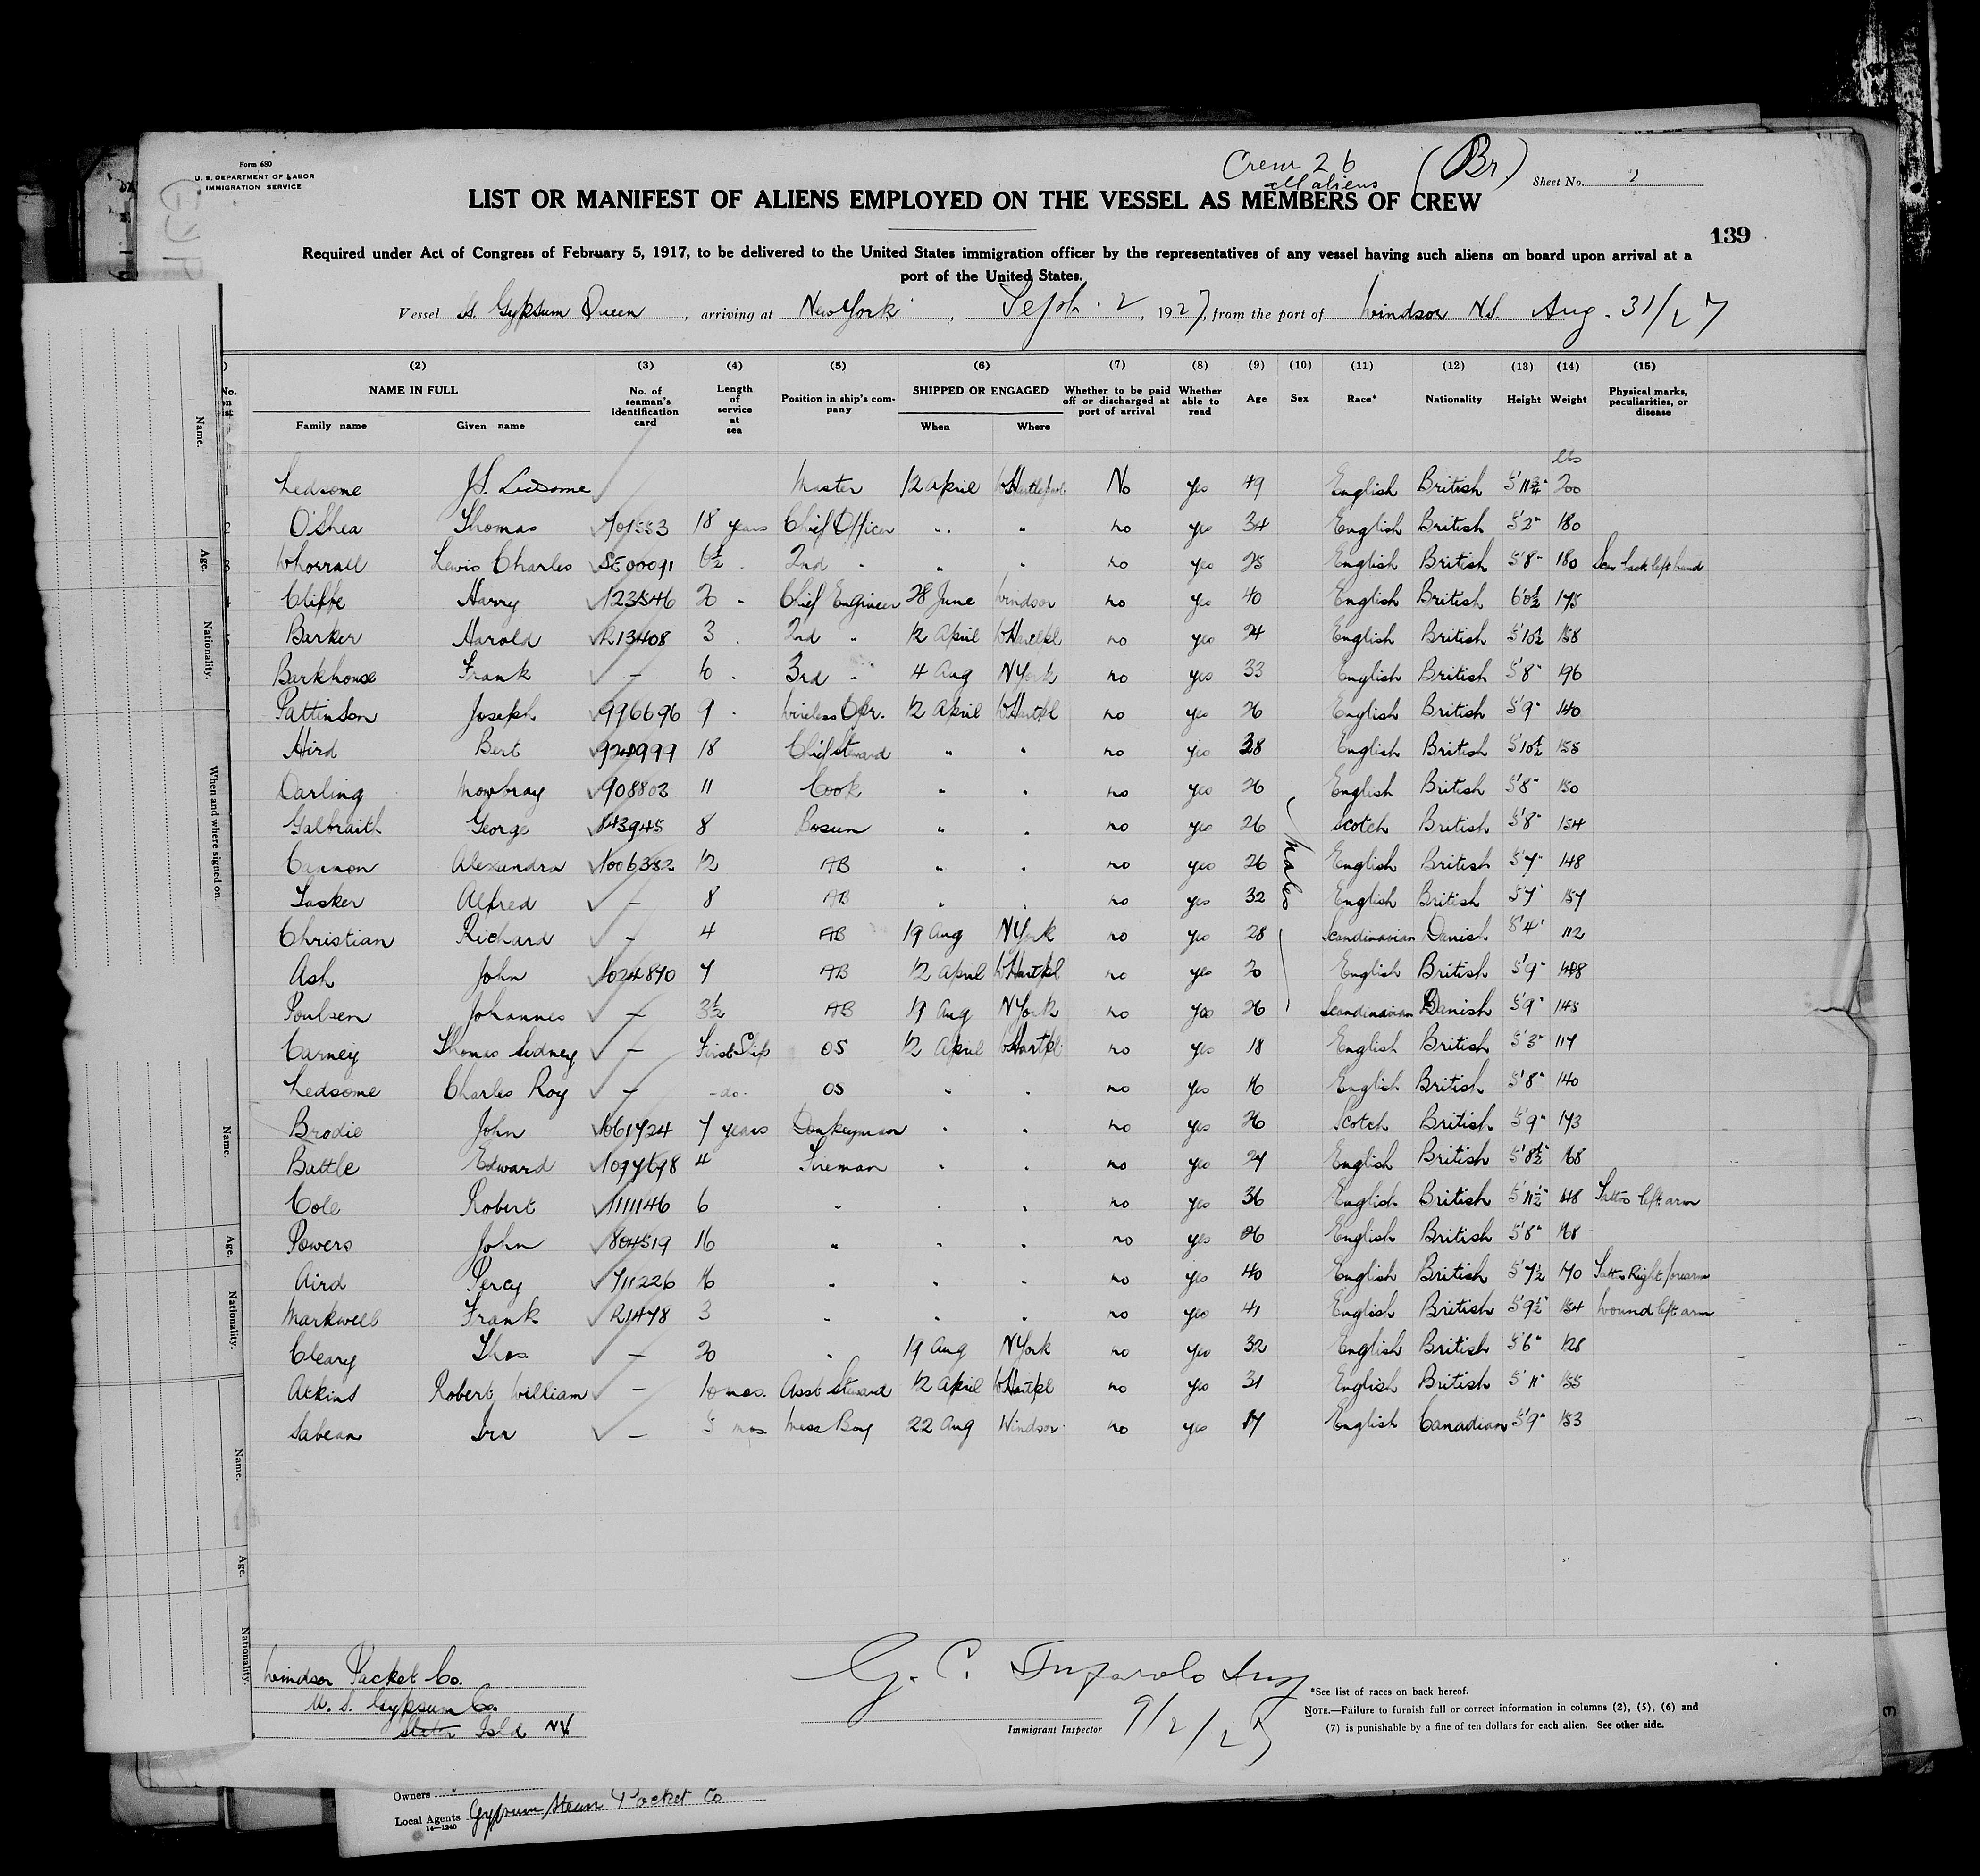 Form 680
U. S. DEPARTMENT OF LABOR
IMMIGRATION SERVICE
Crew 26
all aliens
(Br)
Sheet No.
LIST OR MANIFEST OF ALIENS EMPLOYED ON THE VESSEL AS MEMBERS OF CREW
139
Required under Act of Congress of February 5, 1917, to be delivered to the United States immigration officer by the representatives of any vessel having such aliens on board upon arrival at a
port of the United States.
Vessel SS. Gypsum Queen, arriving at New York, Sept. 2, 1927, from the port of Windsor NS. Aug. 31/27
(2) (3) (4) (5) (6) (7) (8) (9) (10) (11) (12) (13) (14) (15)
NAME IN FULL No. of seaman's identification card Length of service at sea Position in ship's company SHIPPED OR ENGAGED Whether to be paid off or discharged at port of arrival Whether able to read Age Sex Race* Nationality Height Weight Physical marks, peculiarities, or disease
Family name Given name When Where
lbs
1 Ledsome J.S. Ledsome Master 12 April W Hartlepool No yes 49 English British 5'11¾" 200
2 O'Shea Thomas 701553 18 years Chief Officer " " no yes 34 English British 5'2" 180
3 Whorrall Lewis Charles SE00091 6½ " 2nd " " " no yes 25 English British 5'8" 180 Scar back left hand
4 Cliffe Harry 123546 20 " Chief Engineer 28 June Windsor no yes 40 English British 6'0½ 175
5 Barker Harold R13408 3 " 2nd " 12 April W Hartlpl no yes 24 English British 5'10½ 158
Barkhouse Frank – 6 " 3rd " 4 Aug N York no yes 33 English British 5'8" 196
Pattinson Joseph 996696 9 " Wireless Opr. 12 April W Hartpl no yes 26 English British 5'9" 140
Hird Bert 924999 18 Chief Steward " " no yes 38 English British 5'10½ 155
Darling Mowbray 908803 11 Cook " " no yes 26 English British 5'8" 150
Galbraith George 843945 8 Bosun " " no yes 26 Scotch British 5'8" 154
Cannon Alexandra 1006332 12 AB " " no yes 26 English British 5'7" 148
males
Tasker Alfred – 8 AB " " no yes 32 English British 5'7" 157
Christian Richard – 4 AB 19 Aug N York no yes 28 Scandinavian Danish 5'4" 112
Ash John 1024870 7 AB 12 April W Hartpl no yes 20 English British 5'9" 148
Poulsen Johannes – 3½ AB 19 Aug N York no yes 26 Scandinavian Danish 5'9" 145
Carney Thomas Sidney – First Ship OS 12 April W Hartpl no yes 18 English British 5'3" 117
Ledsome Charles Roy – -do- OS " " no yes 16 English British 5'8" 140
Brodie John 1061724 7 years Donkeyman " " no yes 26 Scotch British 5'9" 173
Battle Edward 1097698 4 Fireman " " no yes 27 English British 5'8½" 168
Cole Robert 1111146 6 " " " no yes 36 English British 5'11½" 148 Tattoo left arm
Powers John 804519 16 " " " no yes 26 English British 5'8" 168
Aird Percy 711226 16 " " " no yes 40 English British 5'7½ 170 Tattoo Right forearm
Markwell Frank R1478 3 " " " no yes 41 English British 5'9½" 154 Wound left arm
Cleary Thos – 20 " 19 Aug N York no yes 32 English British 5'6" 128
Atkins Robert William – 10 mos. Asst Steward 12 April W Hartpl no yes 31 English British 5'11" 155
Sabean – 5 mos Mess Boy 22 Aug Windsor no yes 17 English Canadian 5'9" 153
Windsor Packet Co.
U. S. Gypsum Co.
Staten Isld NY
G. C. Insp
Immigrant Inspector 9/2/27
*See list of races on back hereof.
NOTE.—Failure to furnish full or correct information in columns (2), (5), (6) and
(7) is punishable by a fine of ten dollars for each alien. See other side.
Name.
Age.
Nationality.
When and where signed on.
Name.
Age.
Nationality.
Name.
Age.
Nationality.
Owners
Local Agents Gypsum Steam Packet Co
14—1240